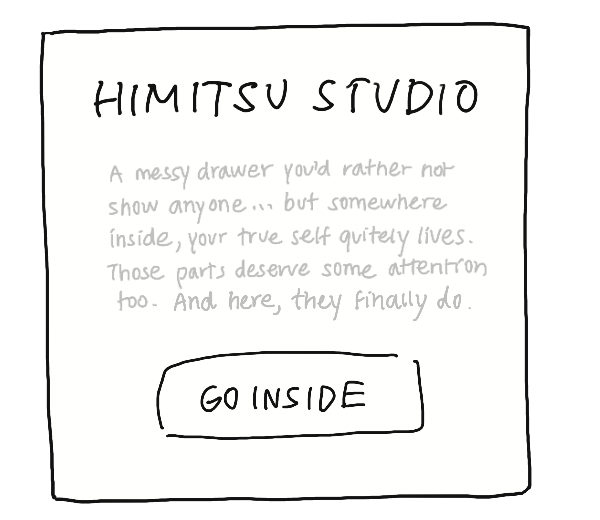 HIMITSU STUDIO
A messy drawer you'd rather not
show anyone... but somewhere
inside, your true self quitely lives.
Those parts deserve some attention
too. And here, they finally do.
GO INSIDE